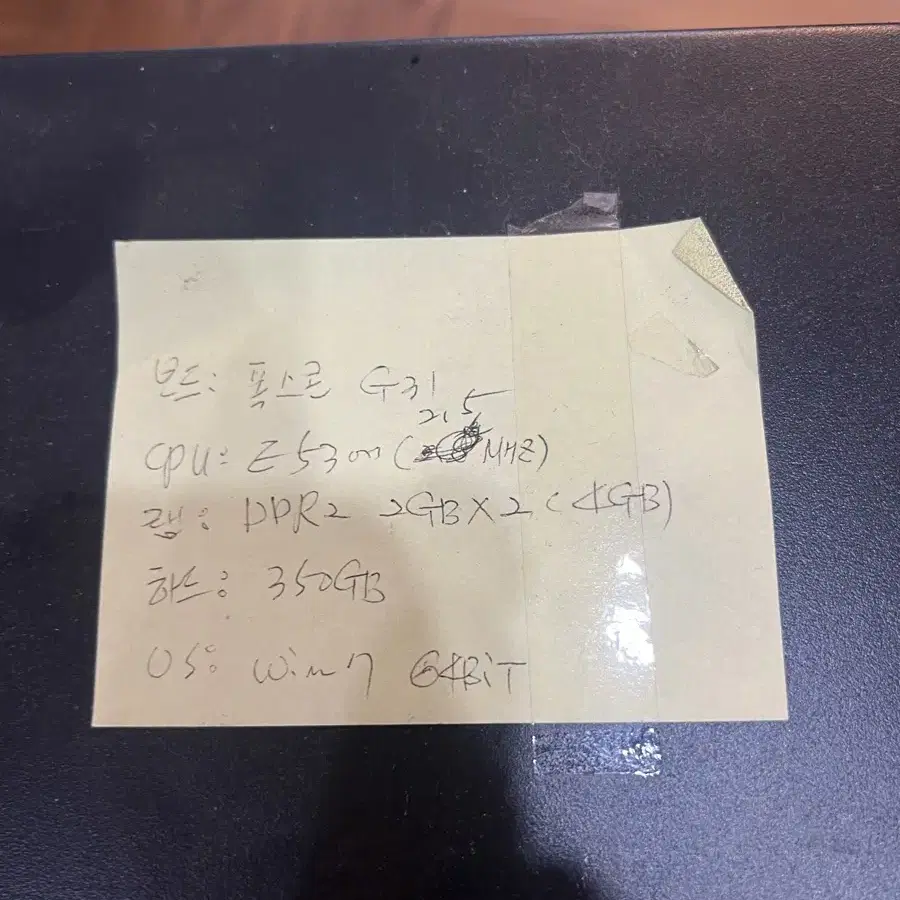 보드: 폭스콘 G31
CPU: E5300 (2.5 MHZ)
램: DDR2 2GB X 2 (4GB)
하드: 350GB
OS: Win7 64BiT